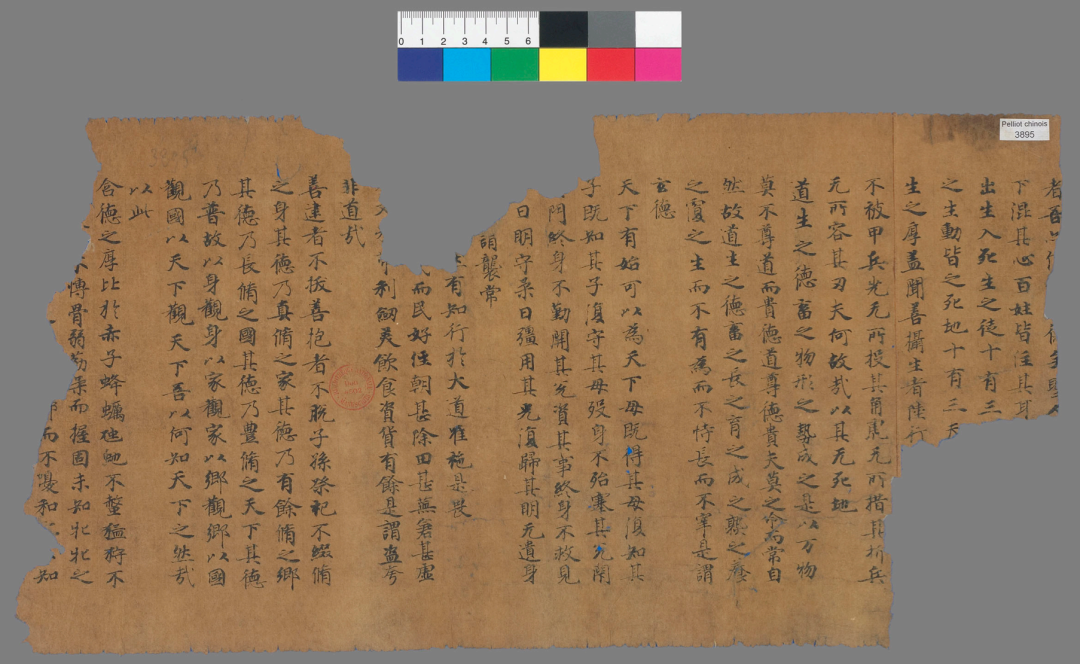 0 1 2 3 4 5 6
Pelliot chinois
3895
者
下混其心百姓皆注其耳
出生入死生之徒十有三
之生動皆之死地十有三夫
生之厚盖聞善攝生者陸行
不被甲兵兕无所投其角虎无所措其爪兵
无所容其刃夫何故哉以其无死地
道生之德畜之物形之勢成之是以万物
莫不尊道而貴德道尊德貴夫莫之命而常自
然故道生之德畜之長之育之成之熟之養
之覆之生而不有為而不恃長而不宰是謂
玄德
天下有始可以為天下母既得其母復知其
子既知其子復守其母歿身不殆塞其兌閉
門終身不勤開其兌濟其事終身不救見
曰明守柔曰彊用其光復歸其明无遺身
謂襲常
有知行於大道唯施是畏
而民好徑朝甚除田甚蕪倉甚虛
利劒猒飲食資貨有餘是謂盗夸
非道哉
善建者不拔善抱者不脱子孫祭祀不綴脩
之身其德乃真脩之家其德乃有餘脩之鄉
其德乃長脩之國其德乃豊脩之天下其德
乃普故以身觀身以家觀家以鄉觀鄉以國
觀國以天下觀天下吾以何知天下之然哉
以此
含德之厚比於赤子蜂蠆虺虵不螫猛狩不
搏骨弱筋柔而握固未知牝牡之
而不嗄和 知